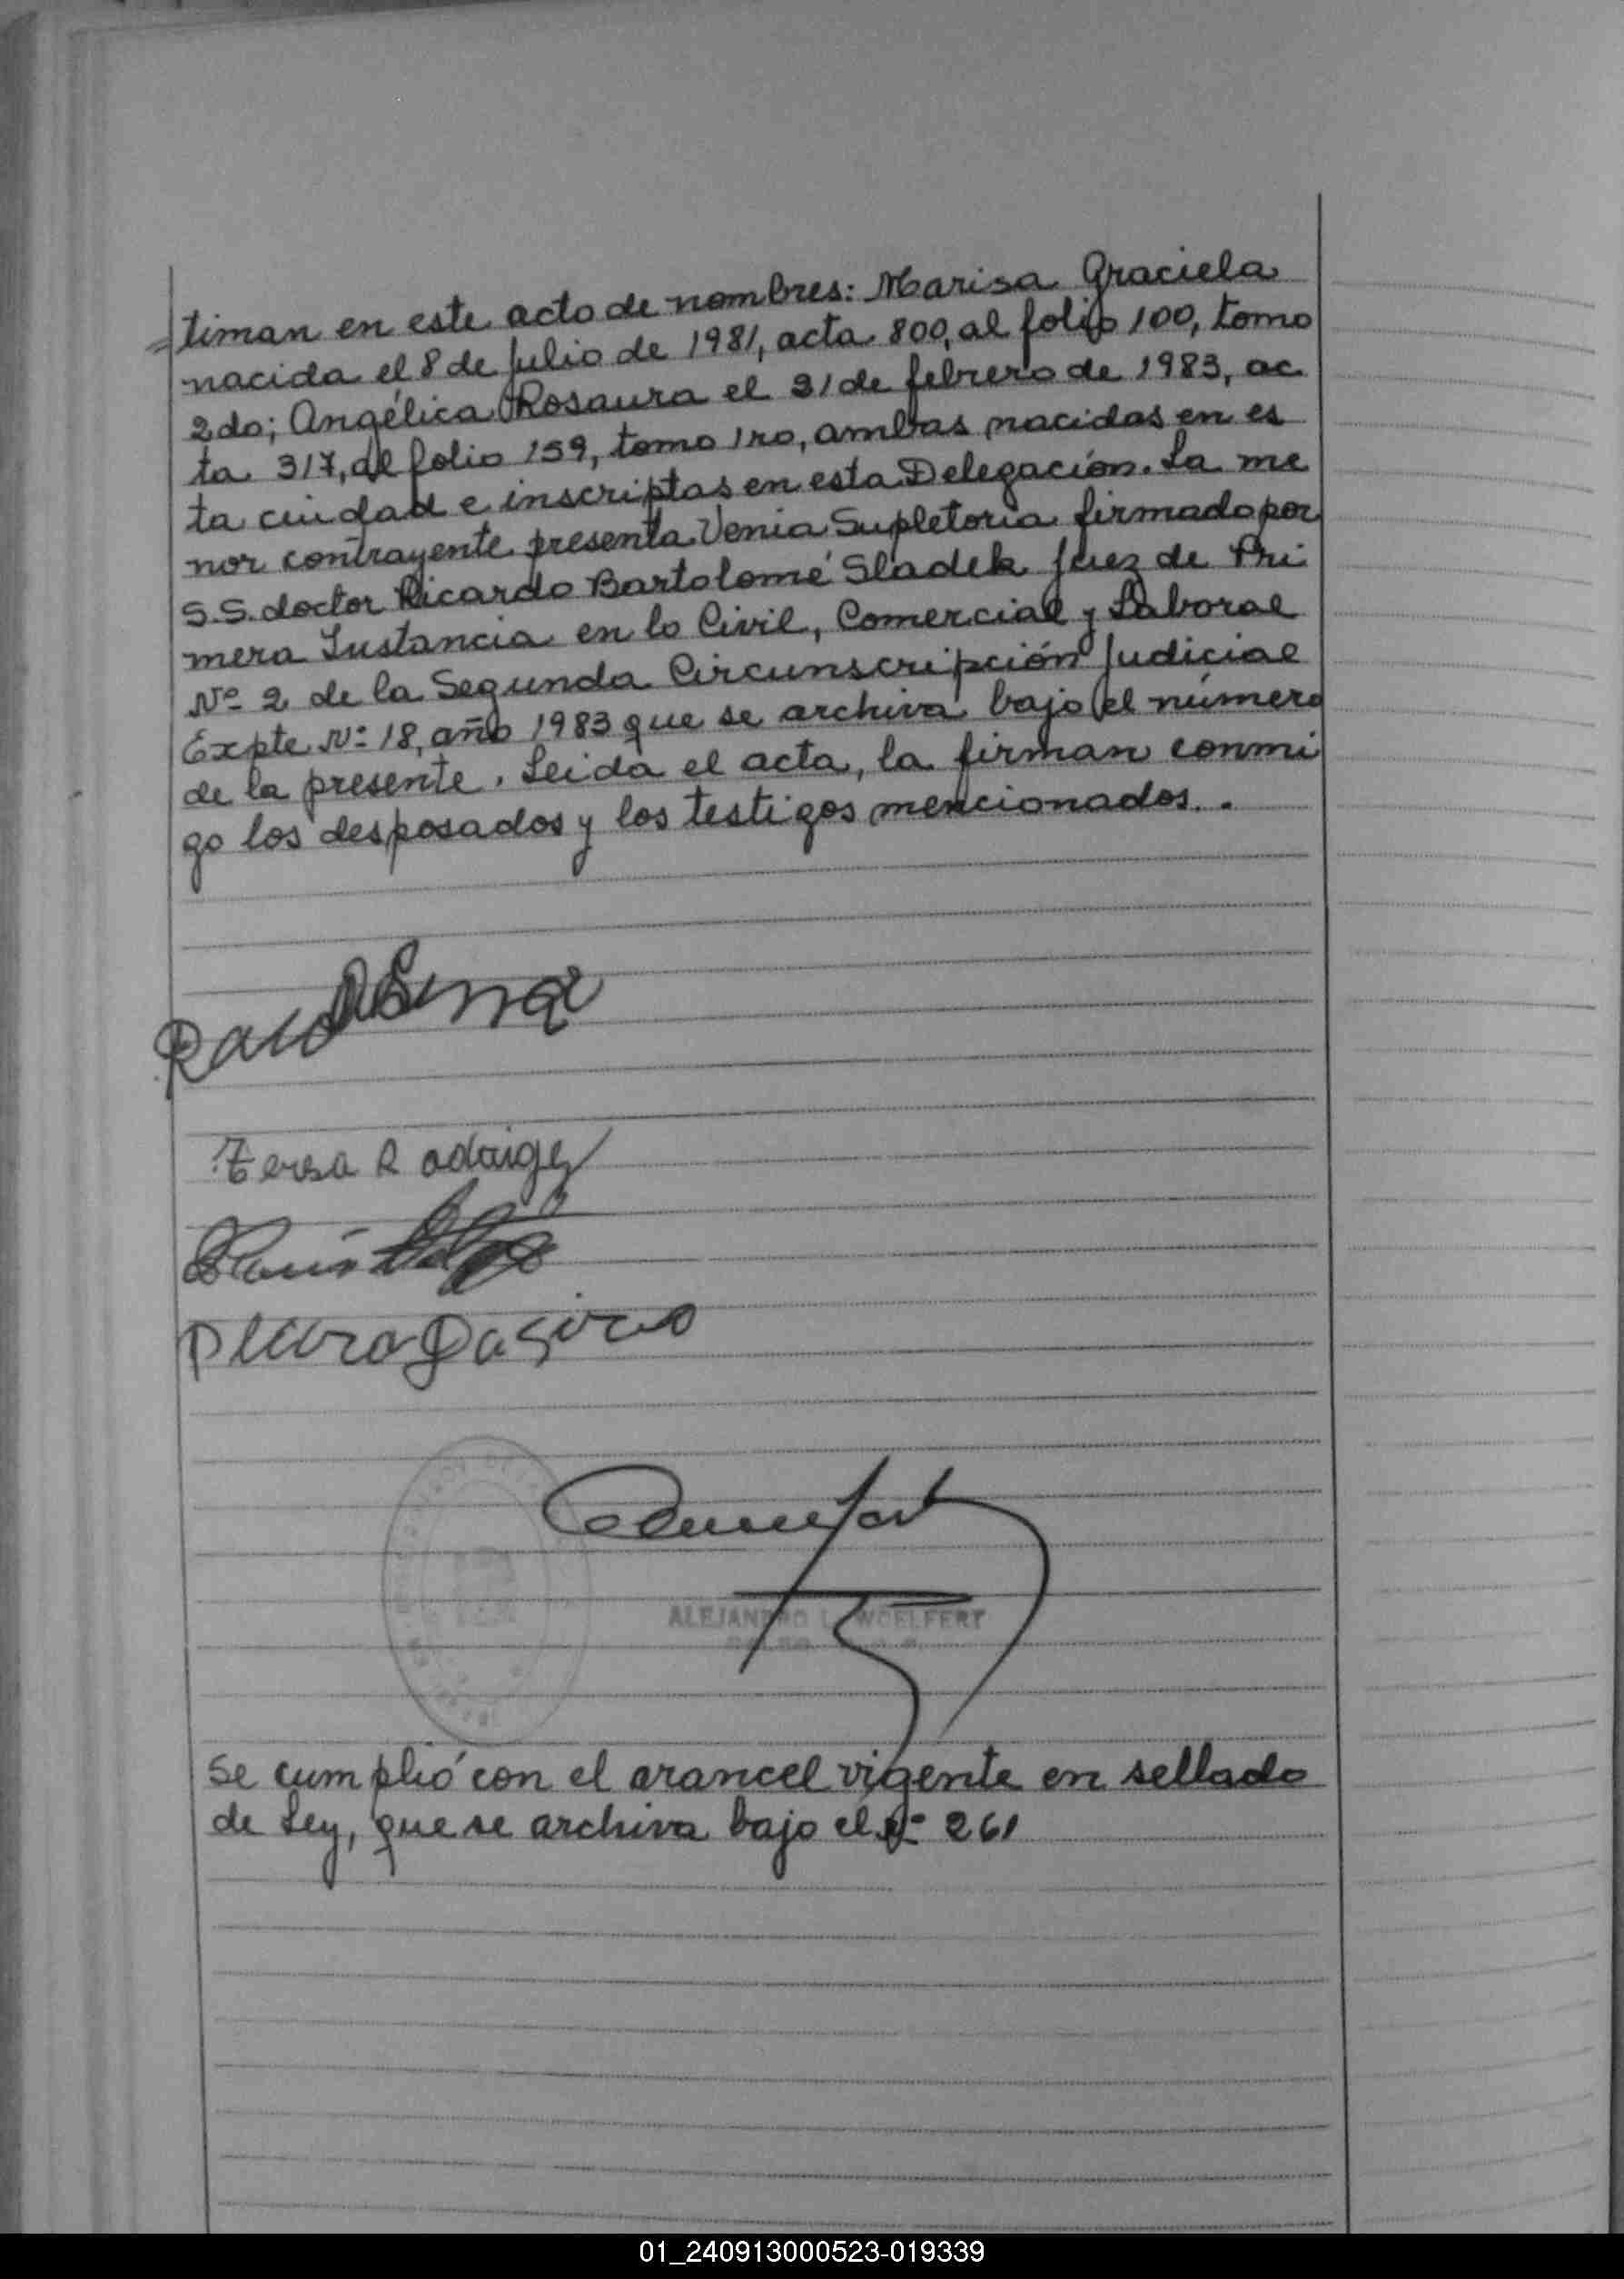 timan en este acto de nombres: Marisa Graciela
nacida el 8 de Julio de 1981, acta 800, al folio 100, tomo
2do; Angélica Rosaura el 21 de febrero de 1983, ac
ta 317, al folio 159, tomo 1ro, ambas nacidas en es
ta ciudad e inscriptas en esta Delegación. La me
nor contrayente presenta Venia Supletoria firmado por
S.S. doctor Ricardo Bartolomé Sladek Juez de Pri
mera Instancia en lo Civil, Comercial y Laboral
Nº 2 de la Segunda Circunscripción Judicial
Expte Nº 18, año 1983 que se archiva bajo el número
de la presente. Leida el acta, la firman conmi
go los desposados y los testigos mencionados.
Teresa Rodrigez
ALEJANDRO L. WOELFERT
Se cumplió con el arancel vigente en sellado
de Ley, que se archiva bajo el Nº 261
01_240913000523-019339